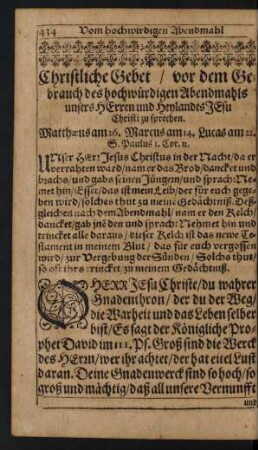 434 Vom hochwirdigen Abendmahl
Christliche Gebet / vor dem Ge-
brauch des hochwürdigen Abendmahls
unsers HErren und Heylandes JEsu
Christi zu sprechen.
Matthæus am 26. Marcus am 14. Lucas am 22.
S. Paulus 1. Cor. 11.
UNser HErr Jesus Christus in der Nacht / da er
verrahten ward / nam er das Brod / dancket und
brachs / und gabs seinen Jüngern / und sprach: Ne-
met hin / Esset / das ist mein Leib / der für euch gege-
ben wird / solches thut zu meine Gedächtniß. Deß-
gleichen nach dem Abendmahl / nam er den Kelch /
dancket / gab jnē den und sprach: Nehmet hin und
trincket alle daraus / dieser Kelch ist das newe Te-
stament in meinem Blut / das für euch vergossen
wird / zur Vergebung der Sünden / Solchs thut /
so oft ihrs trincket zu meinem Gedächtniß.
O HERR JEsu Christe / du wahrer
Gnadenthron / der du der Weg /
die Warheit und das Leben selber
bist / Es sagt der Königliche Pro-
phet David im 111. Ps. Groß sind die Werck
des HErrn / wer ihr achtet / der hat eitel Lust
daran. Deine Gnadenwerck sind so hoch / so
groß und mächtig / daß all unsere Vernunfft
und